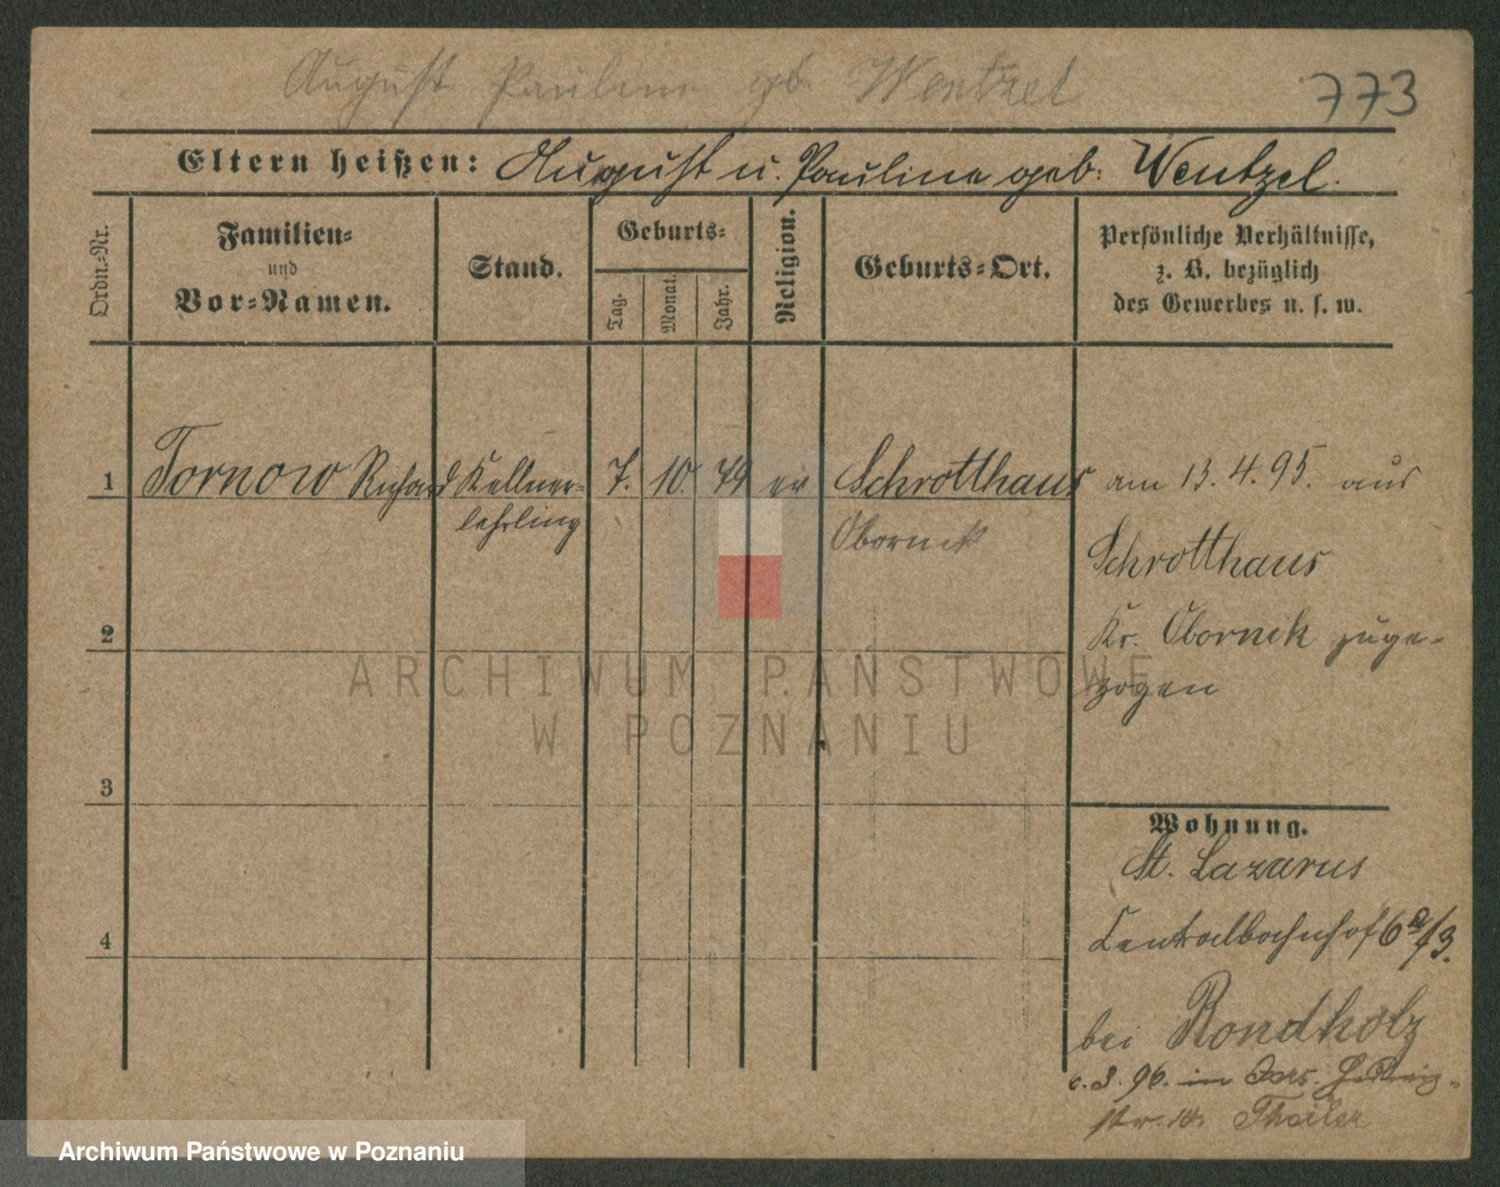 August Pauline gb. Wentzel
773
Eltern heißen: August u. Pauline geb. Wentzel.
Ordn.-Nr.
Familien-
und
Vor-Namen.
Stand.
Geburts-
Tag.
Monat.
Jahr.
Religion.
Geburts-Ort.
Persönliche Verhältnisse,
z. B. bezüglich
des Gewerbes u. s. w.
1 Tornow Richard Kellner- 7. 10. 79 ev Schrotthaus am 13. 4. 95. aus
lehrling Obornik Schrotthaus
2 Kr. Obornik zuge-
zogen
ARCHIWUM PAŃSTWOWE
W POZNANIU
3
Wohnung.
St. Lazarus
4 Centralbahnhof 6a/3.
bei Rondholz
3. 96. in
str. Theiler
Archiwum Państwowe w Poznaniu